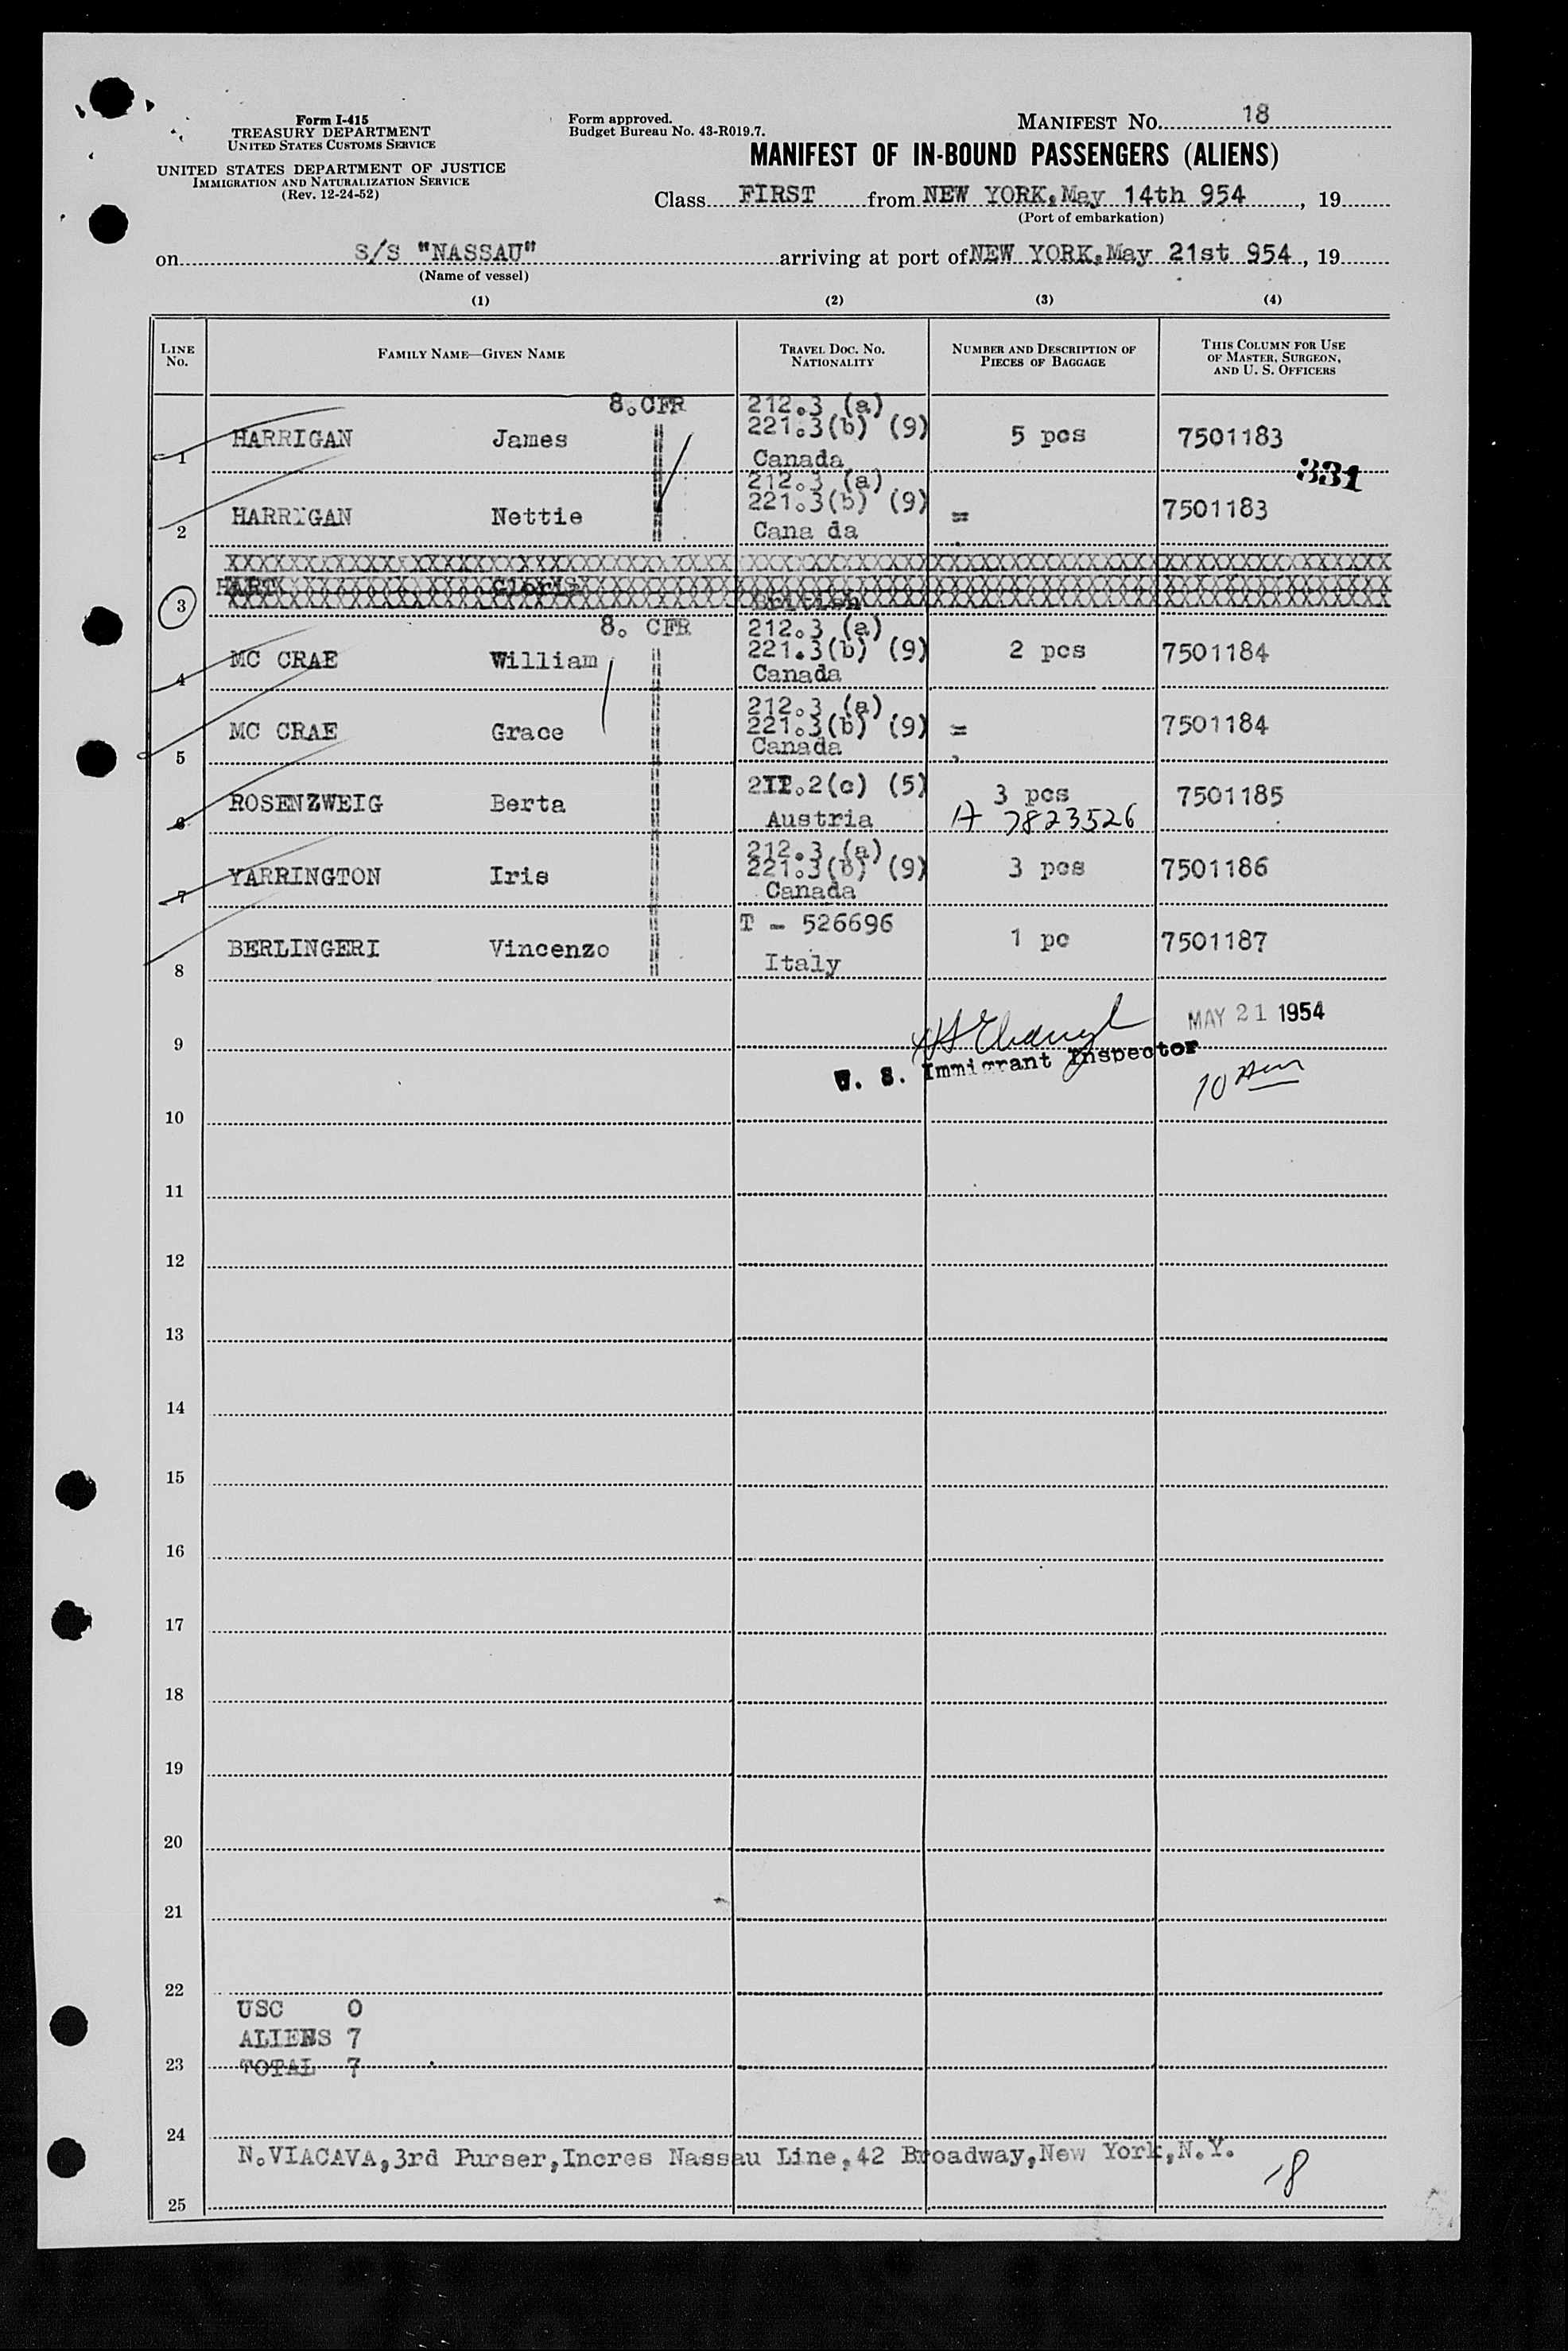 Form I-415
TREASURY DEPARTMENT
UNITED STATES CUSTOMS SERVICE
UNITED STATES DEPARTMENT OF JUSTICE
IMMIGRATION AND NATURALIZATION SERVICE
(Rev. 12-24-52)
Form approved.
Budget Bureau No. 43-R019.7.
MANIFEST No. 18
MANIFEST OF IN-BOUND PASSENGERS (ALIENS)
Class FIRST from NEW YORK, May 14th 954, 19
(Port of embarkation)
on S/S "NASSAU" arriving at port of NEW YORK, May 21st 954, 19
(Name of vessel)
(1) (2) (3) (4)
LINE No. FAMILY NAME—GIVEN NAME TRAVEL DOC. NO. NATIONALITY NUMBER AND DESCRIPTION OF PIECES OF BAGGAGE THIS COLUMN FOR USE OF MASTER, SURGEON, AND U. S. OFFICERS
8.CFR 212.3 (a)
221.3(b) (9)
1 HARRIGAN James Canada 5 pcs 7501183
331
212.3 (a)
221.3(b) (9)
2 HARRIGAN Nettie Cana da = 7501183
3 HART Gloria British
8. CFR 212.3 (a)
221.3(b) (9)
4 MC CRAE William Canada 2 pcs 7501184
212.3 (a)
221.3(b) (9)
5 MC CRAE Grace Canada = 7501184
211.2(c) (5)
6 ROSENZWEIG Berta Austria 3 pcs 7501185
A 7823526
212.3 (a)
221.3(b) (9)
7 YARRINGTON Iris Canada 3 pcs 7501186
T - 526696
8 BERLINGERI Vincenzo Italy 1 pc 7501187
MAY 21 1954
9
U. S. Immigrant Inspector
10
11
12
13
14
15
16
17
18
19
20
21
22
USC 0
ALIENS 7
23 TOTAL 7
24
N.VIACAVA,3rd Purser,Incres Nassau Line,42 Broadway,New York,N.Y.
18
25